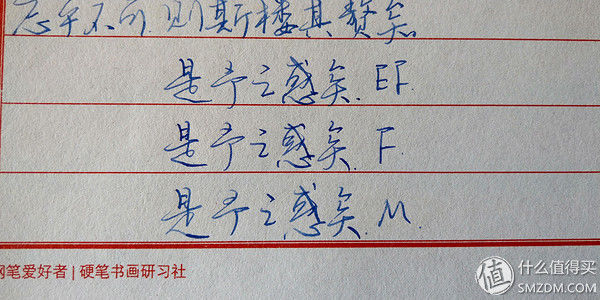 忘乎不可.则斯楼其赘矣.
是予之惑矣. EF.
是予之惑矣. F.
是予之惑矣. M.
钢笔爱好者 | 硬笔书画研习社
值 什么值得买
SMZDM.COM